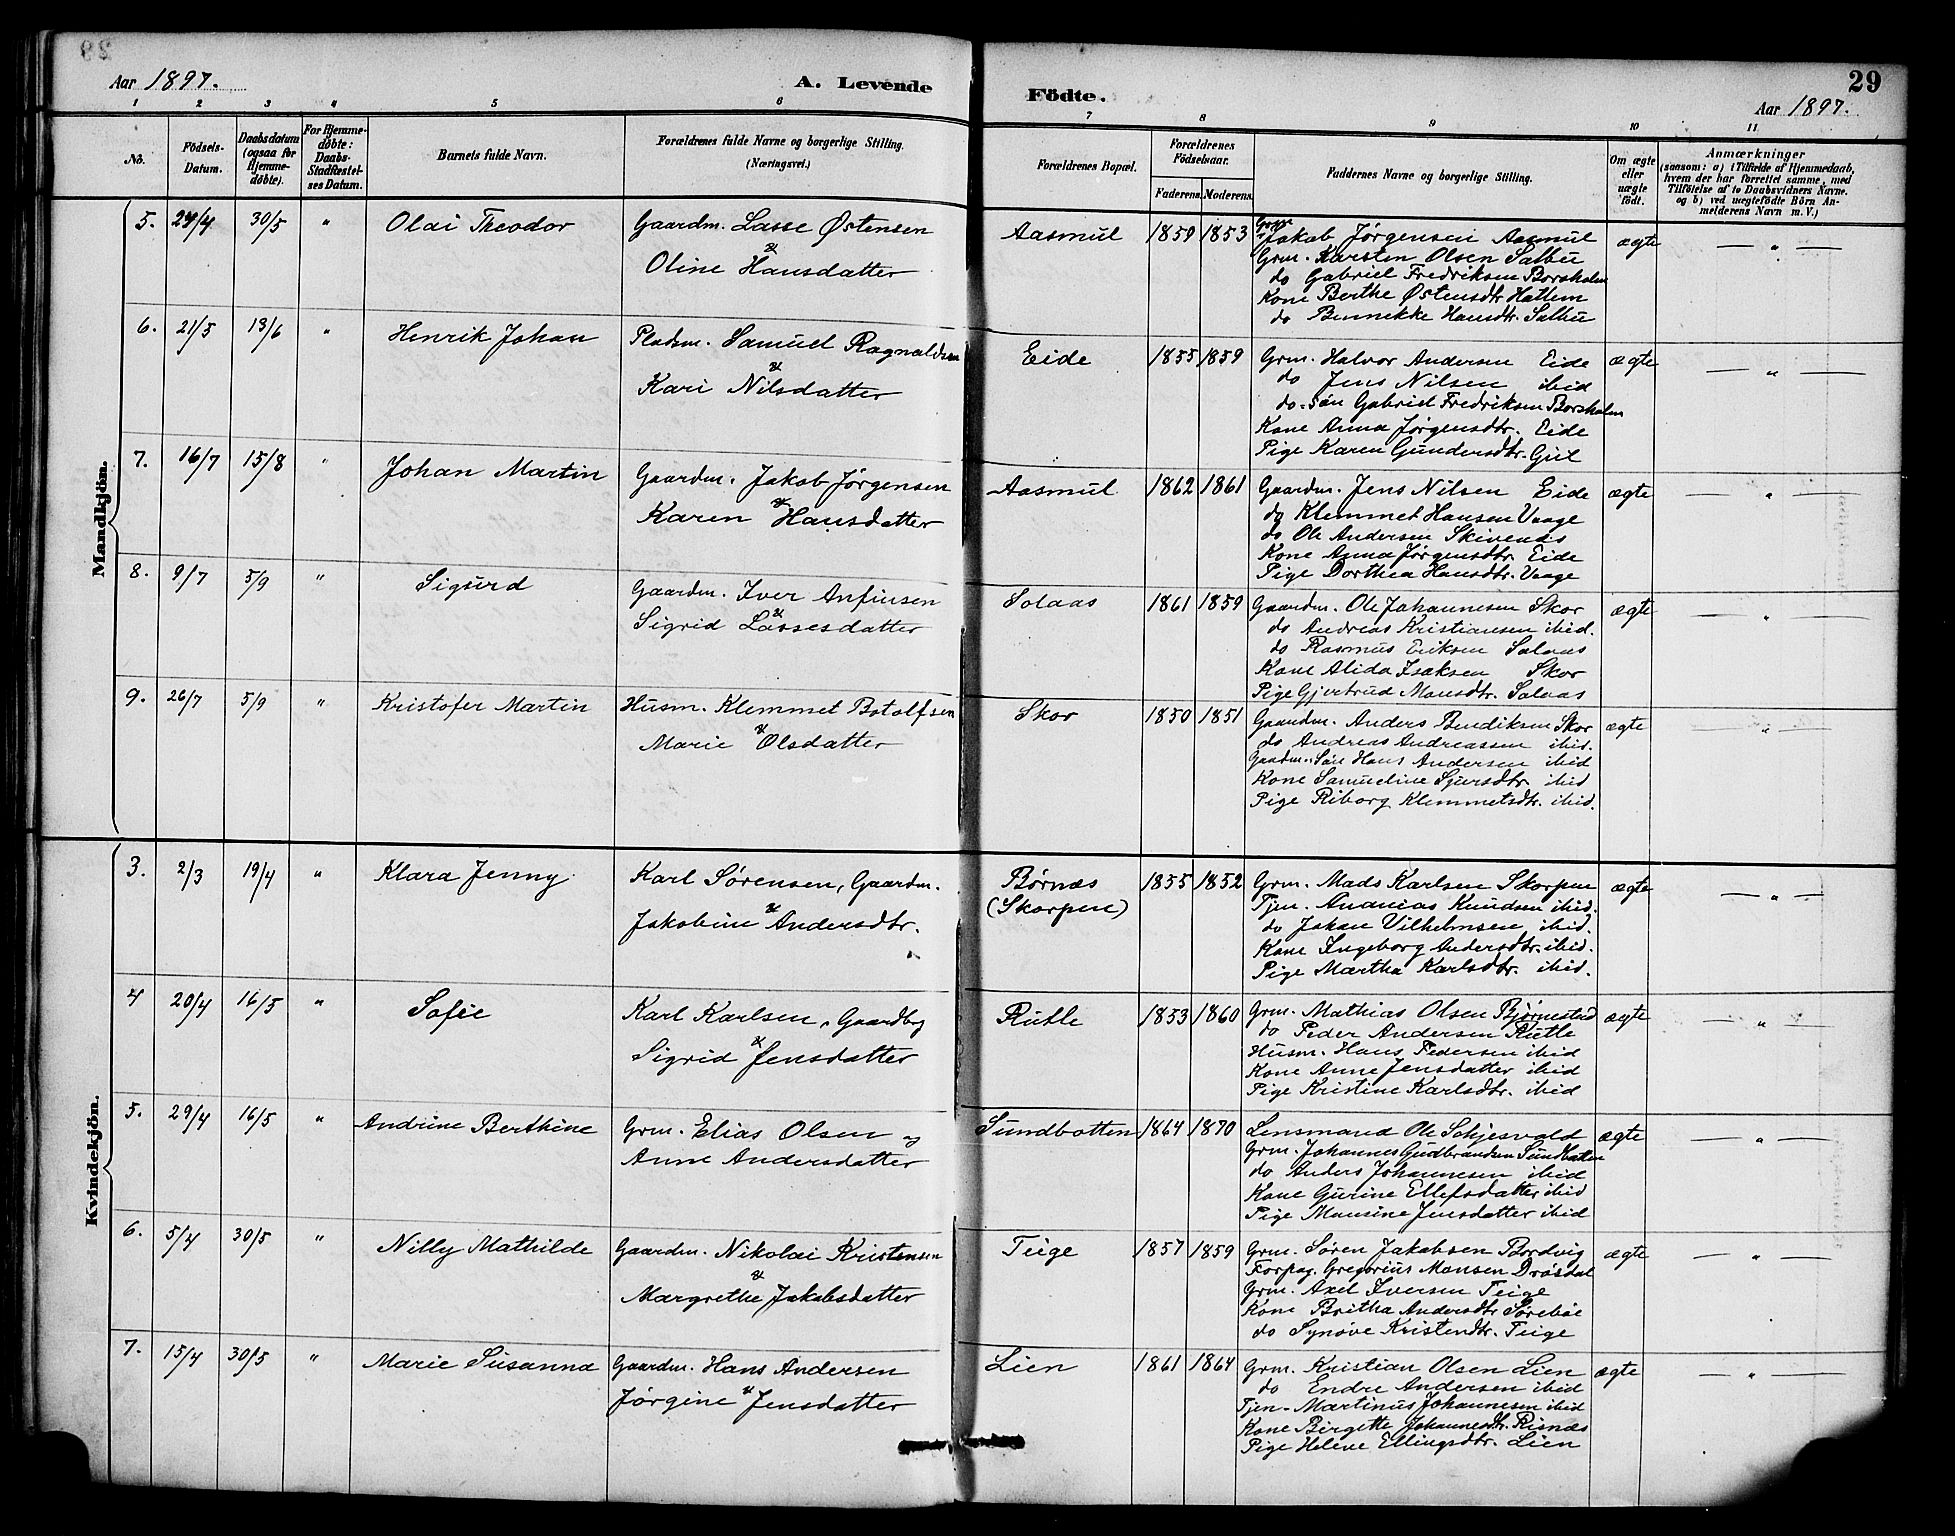 29
Aar 1897.
A. Levende
Födte.
Aar 1897.
1 2 3 4 5 6 7 8 9 10 11
No. Födsels-Datum. Daabsdatum (ogsaa for Hjemmedöbte). For Hjemmedöbte: Daabs-Stadfæstelses Datum. Barnets fulde Navn. Forældrenes fulde Navne og borgerlige Stilling. (Næringsvei.) Forældrenes Bopæl. Forældrenes Födselsaar. Faderens. Moderens. Faddernes Navne og borgerlige Stilling. Om ægte eller uægte födt. Anmærkninger (saasom: a) i Tilfælde af Hjemmedaab, hvem der har forrettet samme, med Tilföielse af to Daabsvidners Navne. og b) ved uægtefödte Börn Anmelderens Navn m. V.)
Mandkjön.
5. 24/4 30/5 " Olai Theodor Gaardm. Lasse Østensen & Oline Hansdatter Aasmul 1859 1853 ægte — " —
Grm. Jakob Jørgensen Aasmul
Grm. Karsten Olsen Salbu
do Gabriel Fredriksen Borsholm
Kone Berthe Østensdtr. Hattem
do Bennekke Hansdtr. Salbu
6. 21/5 13/6 " Henrik Johan Pladsm. Samuel Ragnaldsen & Kari Nilsdatter Eide 1855 1859 ægte — " —
Grm. Halvor Andersen Eide
do Jens Nilsen ibid
do. Søn Gabriel Fredriksen Borsholm
Kone Anna Jørgensdtr. Eide
Pige Karen Gundersdtr. Gjil
7. 16/7 15/8 " Johan Martin Gaardm. Jakob Jørgensen & Karen Hansdatter Aasmul 1862 1861 ægte — " —
Gaardm. Jens Nilsen Eide
do Klemmet Hansen Vaage
do Ole Andersen Skivenæs
Kone Anna Jørgensdtr. Eide
Pige Dorthea Hansdtr. Vaage
8. 9/7 5/9 " Sigurd Gaardm. Iver Anfinsen & Sigrid Lassesdatter Solaas 1861 1859 ægte — " —
Gaardm. Ole Johannesen Skor
do Andreas Kristiansen ibid.
do Rasmus Eriksen Solaas
Kone Alida Isaksen Skor
Pige Gjertrud Monsdtr. Solaas
9. 26/7 5/9 " Kristofer Martin Husm. Klemmet Botolfsen & Marie Olsdatter Skor 1850 1851 ægte — " —
Gaardm. Anders Bendiksen Skor
do Andreas Andreassen ibid.
Gaardm. Søn Hans Andersen ibid
Kone Samueline Sjursdtr. ibid
Pige Riborg Klemmetsdtr. ibid.
Kvindekjön.
3. 2/3 19/4 " Klara Jenny Karl Sørensen, Gaardm. & Jakobine Andersdtr. Børnæs (Skorpen) 1855 1852 ægte — " —
Grm. Mads Karlsen Skorpen
Tjen. Ananias Knudsen ibid.
do Johan Vilhelmsen ibid.
Kone Ingeborg Andersdtr. ibid.
Pige Martha Karlsdtr. ibid.
4 20/4 16/5 " Sofie Karl Karlsen, Gaardbg & Sigrid Jensdatter Rutle 1853 1860 ægte — " —
Grm. Mathias Olsen Bjørnestad
do Peder Andersen Rutle
Husm. Hans Pedersen ibid
Kone Anne Jensdatter ibid
Pige Kristine Karlsdtr. ibid
5. 29/4 16/5 " Andrine Berthine Grm. Elias Olsen og Anne Andersdatter Sundbotten 1864 1870 ægte — " —
Lensmand Ole Schjesvold
Grm. Johannes Gudbrandsen Sundbotten
do Anders Johannesen ibid
Kone Gurine Ellefsdatter ibid
Pige Monsine Jensdatter ibid
6. 5/4 30/5 " Nilly Mathilde Gaardm. Nikolai Kristensen & Margrethe Jakobsdatter Teige 1857 1859 ægte — " —
Grm. Søren Jakobsen Bordvig
Forpag. Gregorius Monsen Drösdal
Grm. Axel Iversen Teige
Kone Britha Andersdtr Sørebøe
do Synøve Kristendtr. Teige
7. 15/4 30/5 " Marie Susanna Gaardm. Hans Andersen & Jørgine Jensdatter Lien 1861 1864 ægte — " —
Grm. Kristian Olsen Lien
do Endre Andersen ibid
Tjen- Martinus Johannesen ibid
Kone Birgitte Johannesdtr. Risnæs
Pige Helene Ellingsdtr. Lien